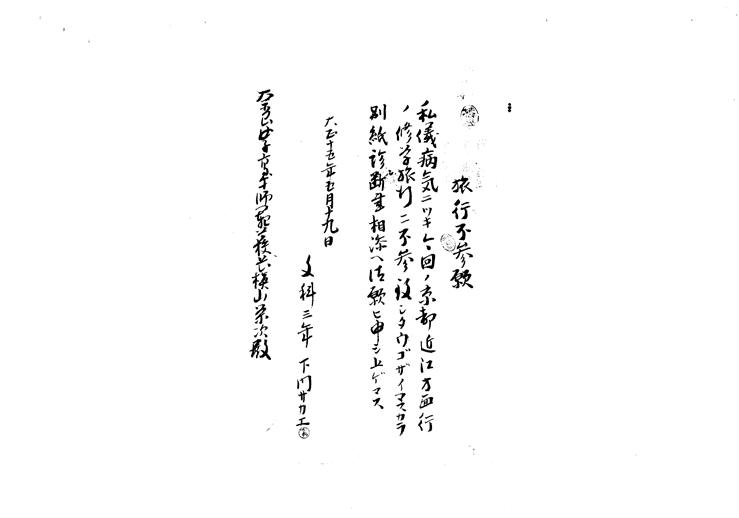 旅行不参願
私儀病気ニツキ今回ノ京都近江方面行
ノ修学旅行ニ不参致シタウゴザイマスカラ
別紙診断書相添へ御願ヒ申シ上ゲマス
大正十五年五月十九日
文科三年 下門サカエ
奈良女子高等師範学校長槇山栄次殿